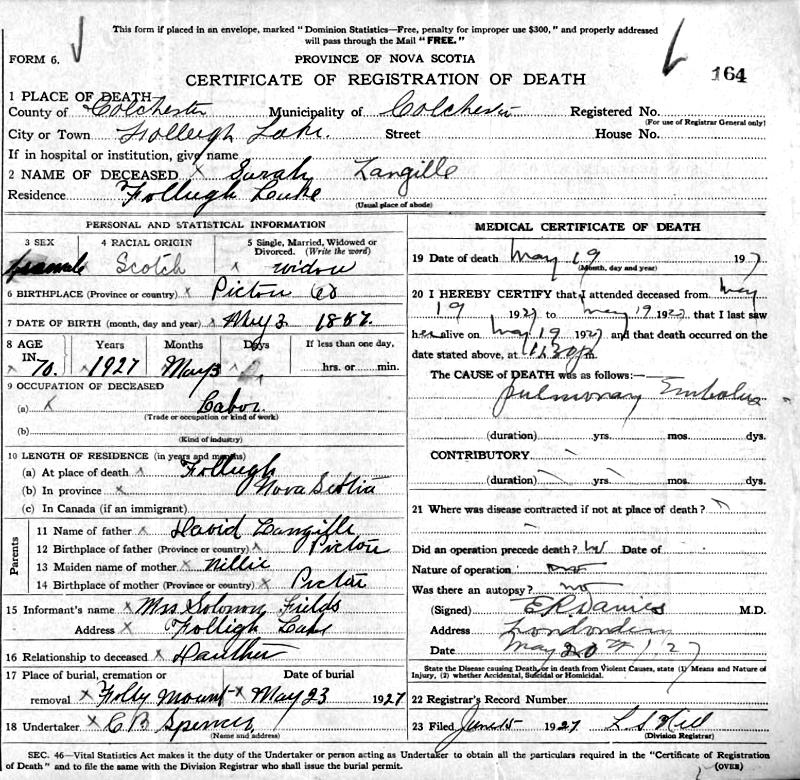 This form if placed in an envelope, marked "Dominion Statistics—Free, penalty for improper use $300," and properly addressed
will pass through the Mail "FREE."
FORM 6.
PROVINCE OF NOVA SCOTIA
164
CERTIFICATE OF REGISTRATION OF DEATH
1 PLACE OF DEATH
County of Colchester Municipality of Colchester Registered No.
(For use of Registrar General only)
City or Town Folleigh Lake. Street House No.
If in hospital or institution, give name
2 NAME OF DECEASED x Sarah Langille
Residence Folleigh Lake
(Usual place of abode)
PERSONAL AND STATISTICAL INFORMATION
3 SEX 4 RACIAL ORIGIN 5 Single, Married, Widowed or
Divorced. (Write the word)
Female Scotch x widow
6 BIRTHPLACE (Province or country) x Pictou Co
7 DATE OF BIRTH (month, day and year) x May 3 1857.
8 AGE Years Months Days If less than one day,
IN 70. 1927 May 3 hrs. or min.
9 OCCUPATION OF DECEASED
(a) x Labor
(Trade or occupation or kind of work)
(b)
(Kind of industry)
10 LENGTH OF RESIDENCE (in years and months)
(a) At place of death x Folleigh
(b) In province x Nova Scotia
(c) In Canada (if an immigrant)
Parents
11 Name of father x David Langille
12 Birthplace of father (Province or country) x Pictou
13 Maiden name of mother x Nillie
14 Birthplace of mother (Province or country) x Pictou
15 Informant's name x Mrs Solomon Fields
Address x Folleigh Lake
16 Relationship to deceased x Dauther
17 Place of burial, cremation or Date of burial
removal x Folly Mount x May 23 1927
18 Undertaker x C B Spencer
(Name and address)
MEDICAL CERTIFICATE OF DEATH
19 Date of death May 19 1927
(Month, day and year)
20 I HEREBY CERTIFY that I attended deceased from May
19 1927 to May 19 1927 that I last saw
her alive on May 19 1927 and that death occurred on the
date stated above, at 11.30 m.
The CAUSE of DEATH was as follows:—
pulmonary Embolus
(duration) yrs. mos. dys.
CONTRIBUTORY
(duration) yrs. mos. dys.
21 Where was disease contracted if not at place of death?
Did an operation precede death? No Date of
Nature of operation
Was there an autopsy? no
(Signed) E.R. Davies M.D.
Address Londonderry
Date May 20th / 27
State the Disease causing Death, or in death from Violent Causes, state (1) Means and Nature of
Injury, (2) whether Accidental, Suicidal or Homicidal.
22 Registrar's Record Number
23 Filed June 15 1927 L. S. Hill
(Division Registrar)
SEC. 46—Vital Statistics Act makes it the duty of the Undertaker or person acting as Undertaker to obtain all the particulars required in the "Certificate of Registration
of Death" and to file the same with the Division Registrar who shall issue the burial permit.
(OVER)